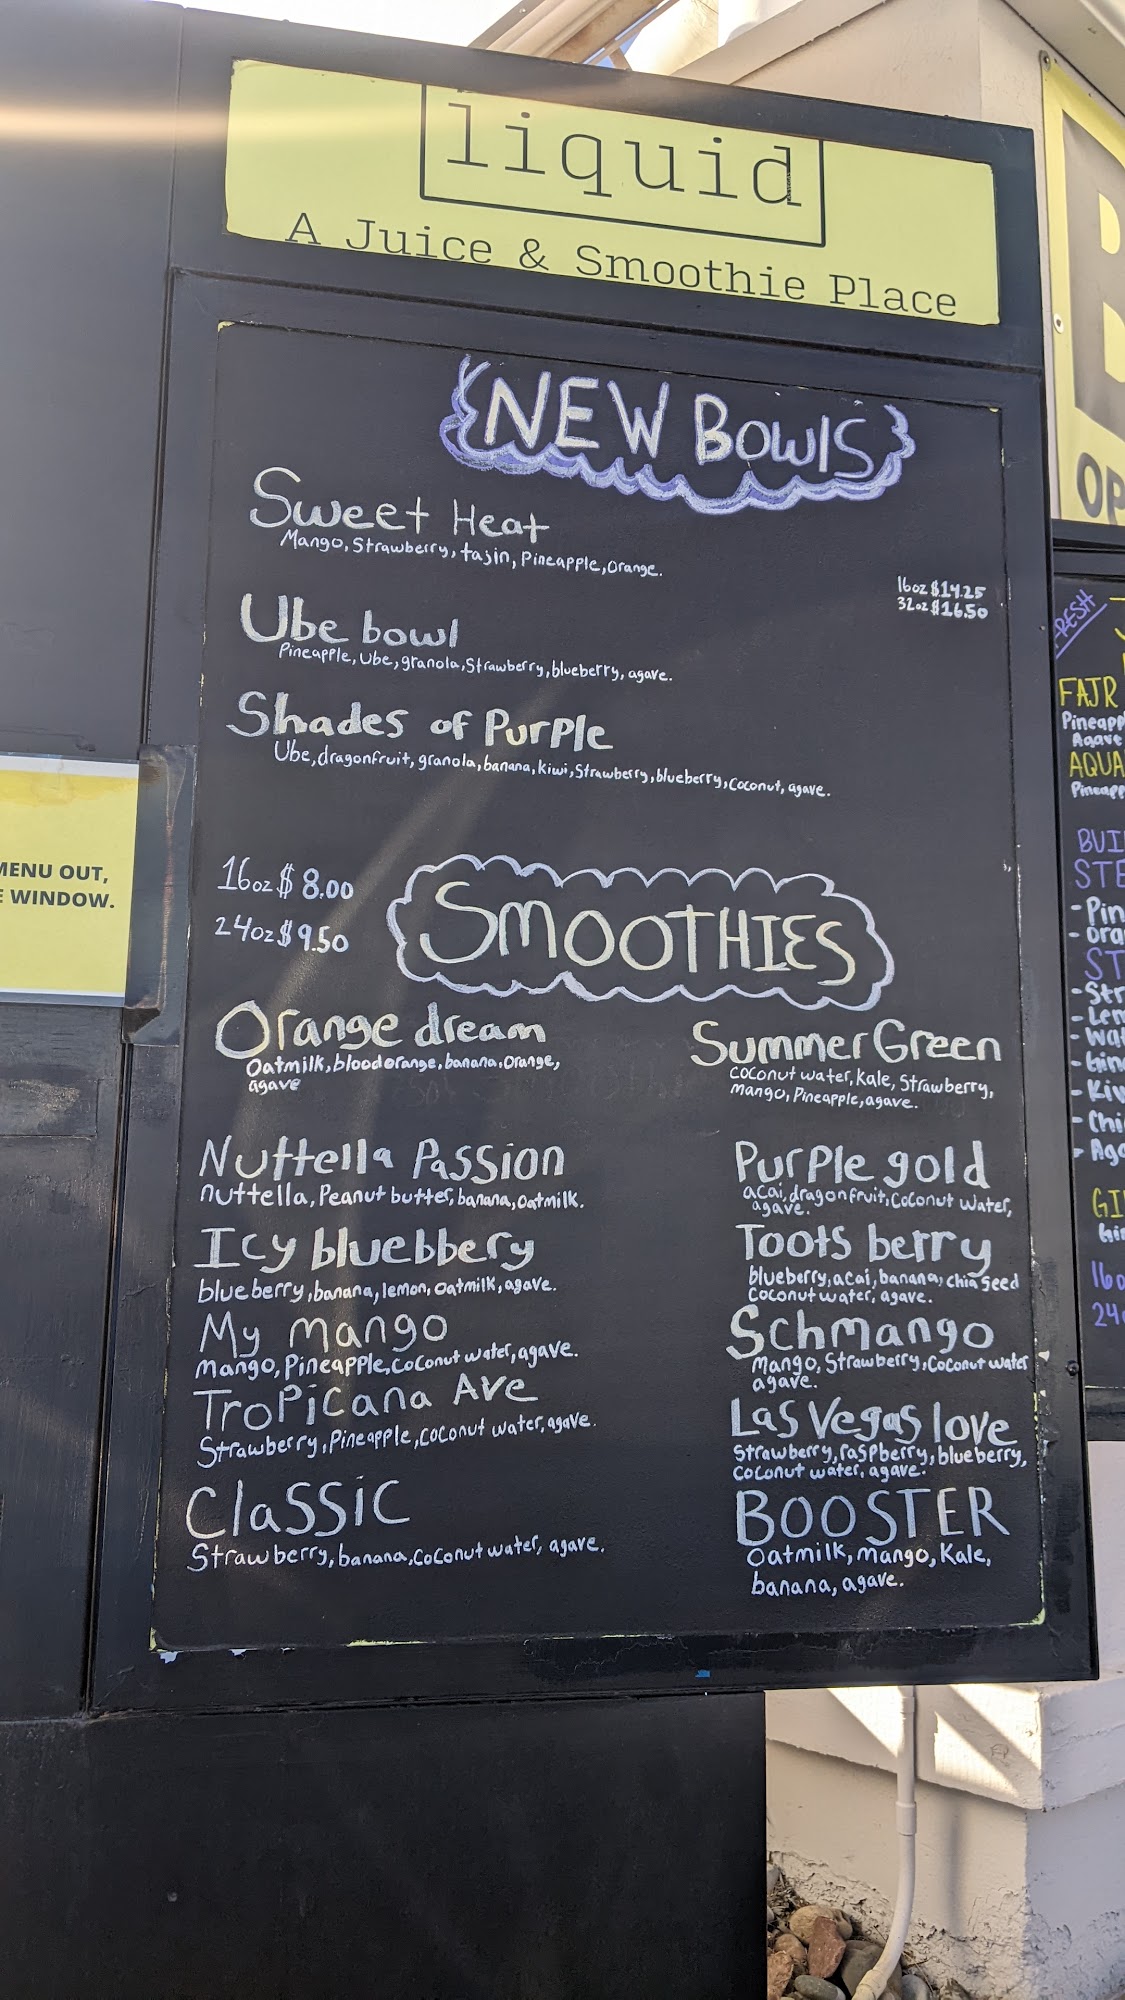 liquid
A Juice & Smoothie Place
NEW BOWlS
Sweet Heat
Mango, Strawberry, tajin, Pineapple, Orange.
16oz $14.25
32oz $16.50
Ube bowl
Pineapple, Ube, granola, Strawberry, blueberry, agave.
Shades of Purple
Ube, dragonfruit, granola, banana, kiwi, Strawberry, blueberry, Coconut, agave.
16oz $8.00
24oz $9.50
SMOOTHIES
Orange dream
Oatmilk, blood orange, banana, Orange,
agave
Nuttella Passion
nuttella, Peanut butter, banana, Oatmilk.
Icy bluebbery
blueberry, banana, lemon, Oatmilk, agave.
My mango
Mango, Pineapple, Coconut water, agave.
Tropicana Ave
Strawberry, Pineapple, coconut water, agave.
Classic
Strawberry, banana, Coconut water, agave.
Summer Green
Coconut water, Kale, Strawberry,
mango, Pineapple, agave.
Purple gold
acai, dragonfruit, Coconut Water,
agave.
Toots berry
blueberry, acai, banana, chia seed
Coconut water, agave.
Schmango
Mango, Strawberry, Coconut water
agave.
Las Vegas love
Strawberry, raspberry, blueberry,
Coconut water, agave.
BOOSTER
Oatmilk, mango, Kale,
banana, agave.
MENU OUT,
WINDOW.
OP
FAJR
Agave
AQUA